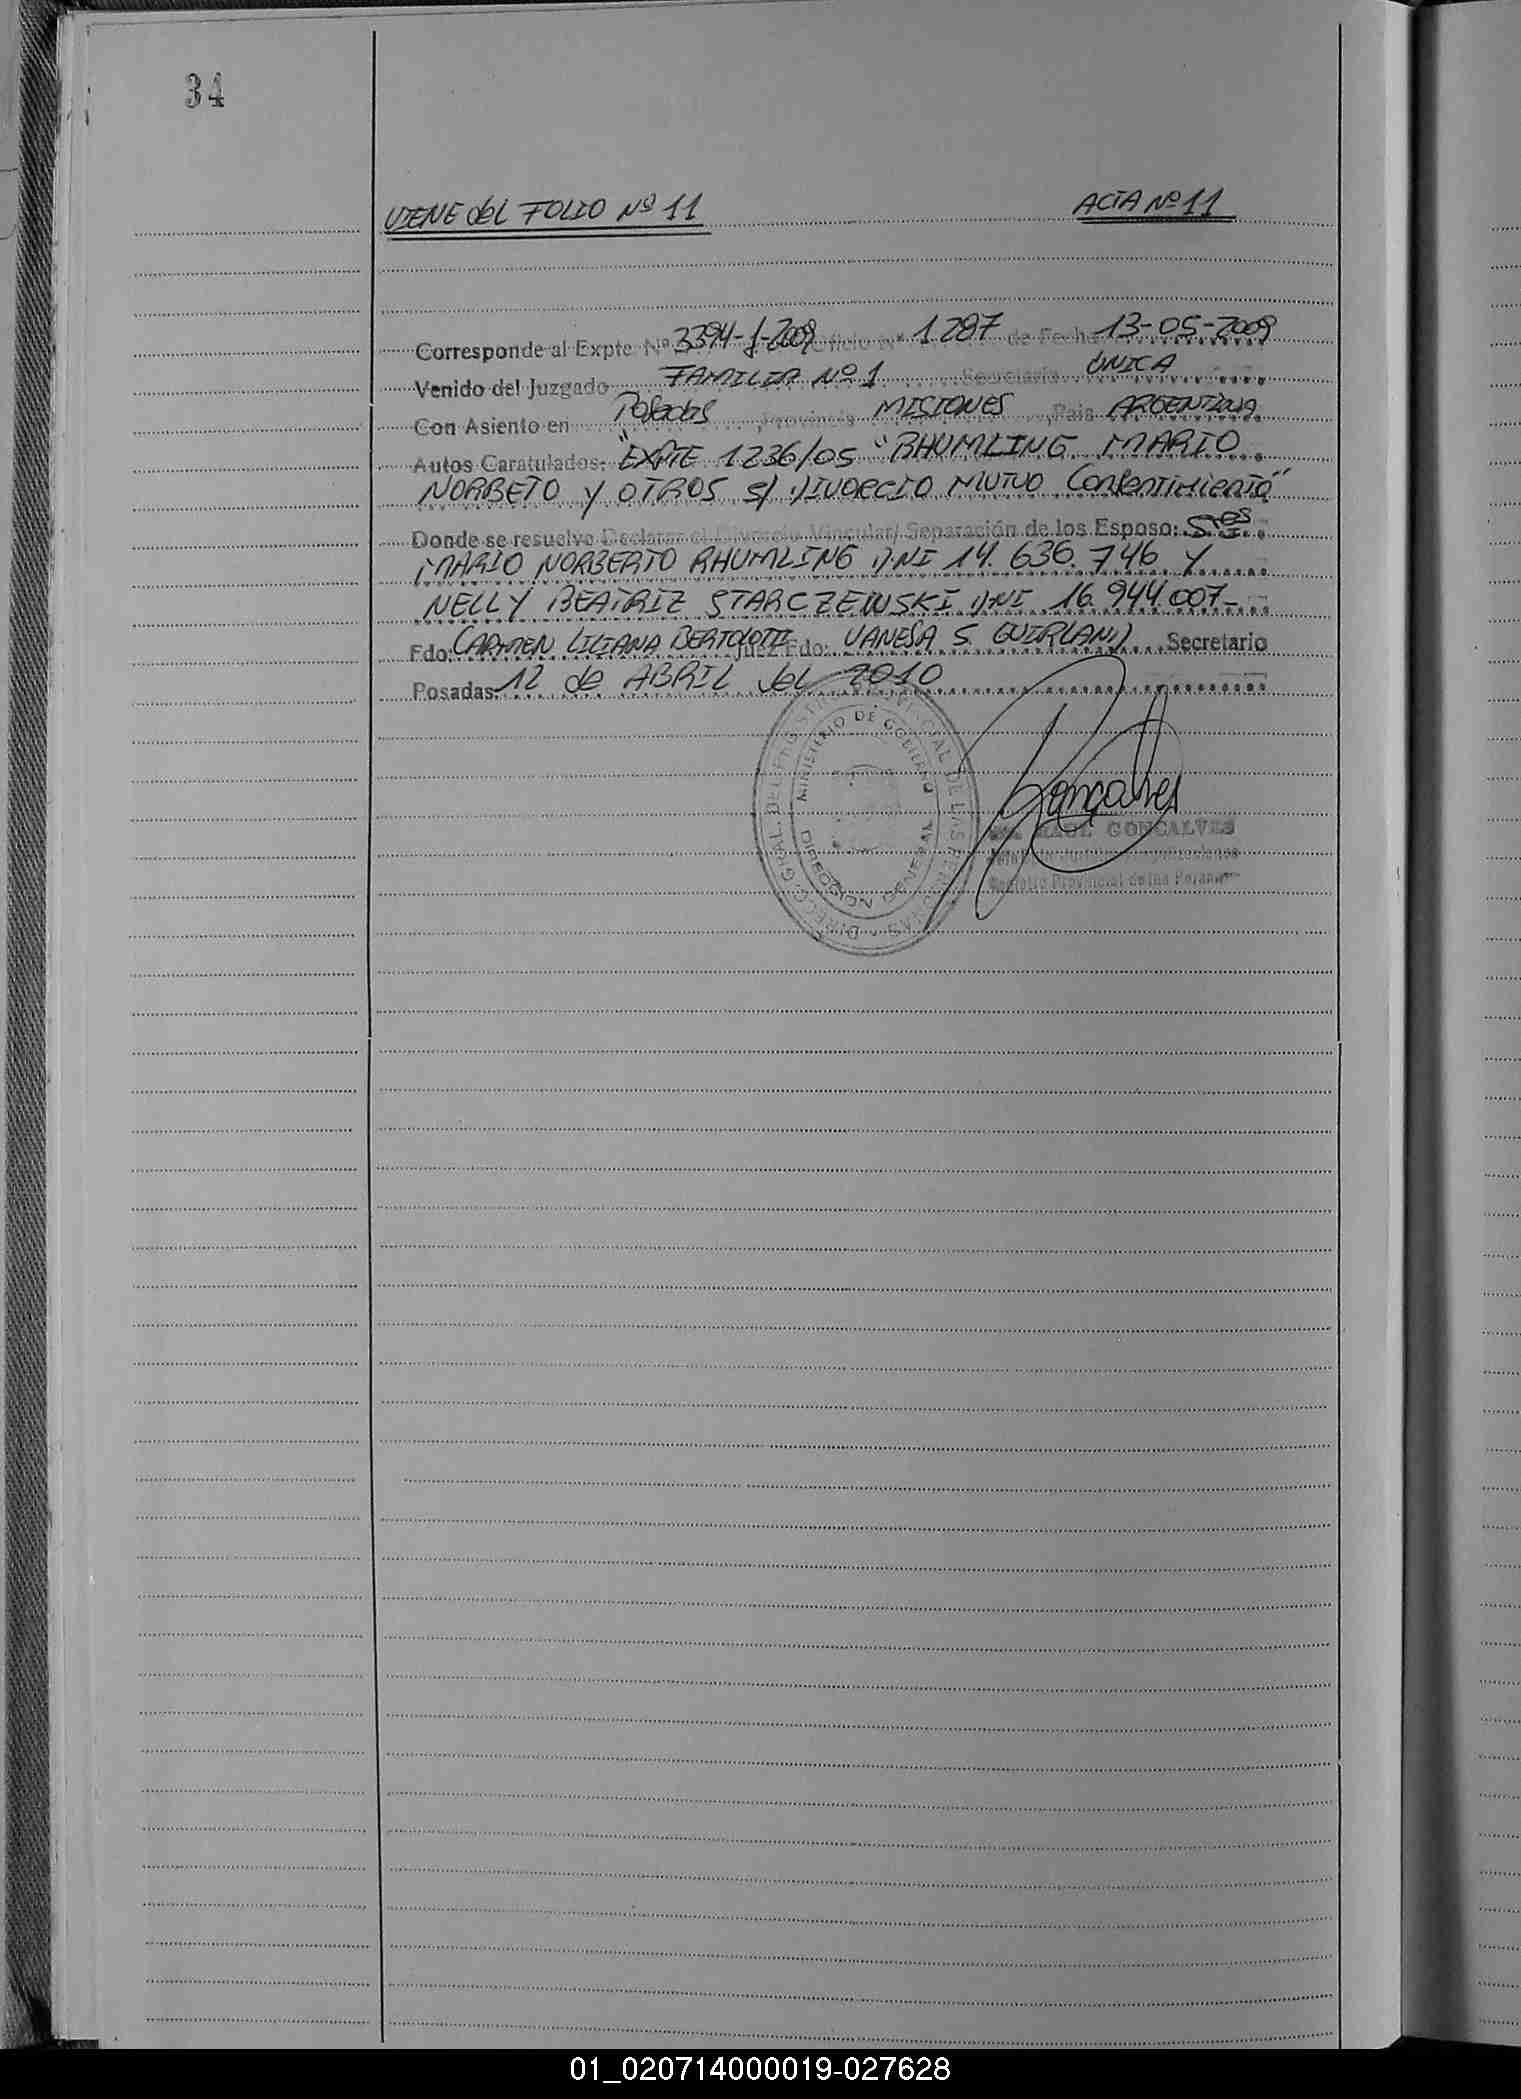 34
VIENE del FOLIO Nº 11 ACTA Nº 11
Corresponde al Expte Nº 3394-J-2009 Oficio Nº 1287 de Fecha 13-05-2009
Venido del Juzgado FAMILIA Nº 1 Secretaria UNICA
Con Asiento en Posadas, Provincia MISIONES, Pais ARGENTINA
Autos Caratulados: "EXPTE 1236/05 "RHUMLING MARIO
NORBETO y OTROS S/ DIVORCIO MUTUO Consentimiento"
Donde se resuelve Declarar el Divorcio Vincular/ Separación de los Esposo: Sres.
MARIO NORBERTO RHUMLING DNI 14.636.746 Y
NELLY BEATRIZ STARCZEWSKI DNI 16.944.007-
Fdo: CARMEN LILIANA BERTOLOTTI Juez Fdo: VANESA S. GUIRLAND Secretario
Posadas: 12 de ABRIL del 2010
DIRECC. GRAL. DEL REGISTRO PROVINCIAL DE LAS PERSONAS
MINISTERIO DE GOBIERNO
DIRECCION GENERAL
Goncalves
RAUL GONCALVES
Registro Provincial de las Personas
01_020714000019-027628